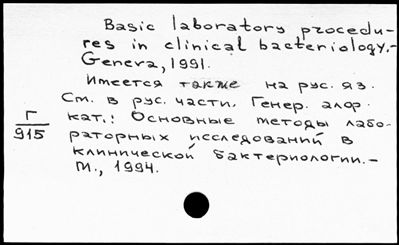 Basic laboratory procedu-
res in clinical bacteriology.-
Geneva, 1991.
Имеется также на рус. яз.
См. в рус. части. Генер. алф.
кат.: Основные методы лабо-
раторных исследований в
клинической бактериологии.-
М., 1994.
Г
915